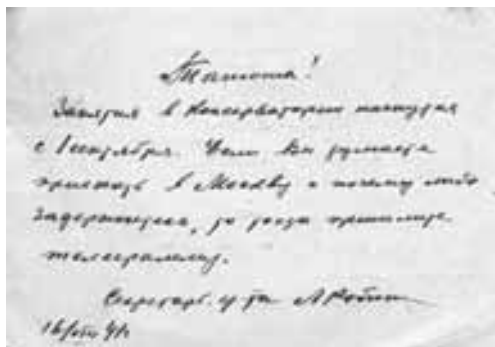 Танюша!
Занятия в Консерватории начнутся
с 1 сентября. Если Вы думаете
приехать в Москву и почему либо
задержитесь, то тогда пришлите
телеграмму.
Секретарь
16/VIII 41